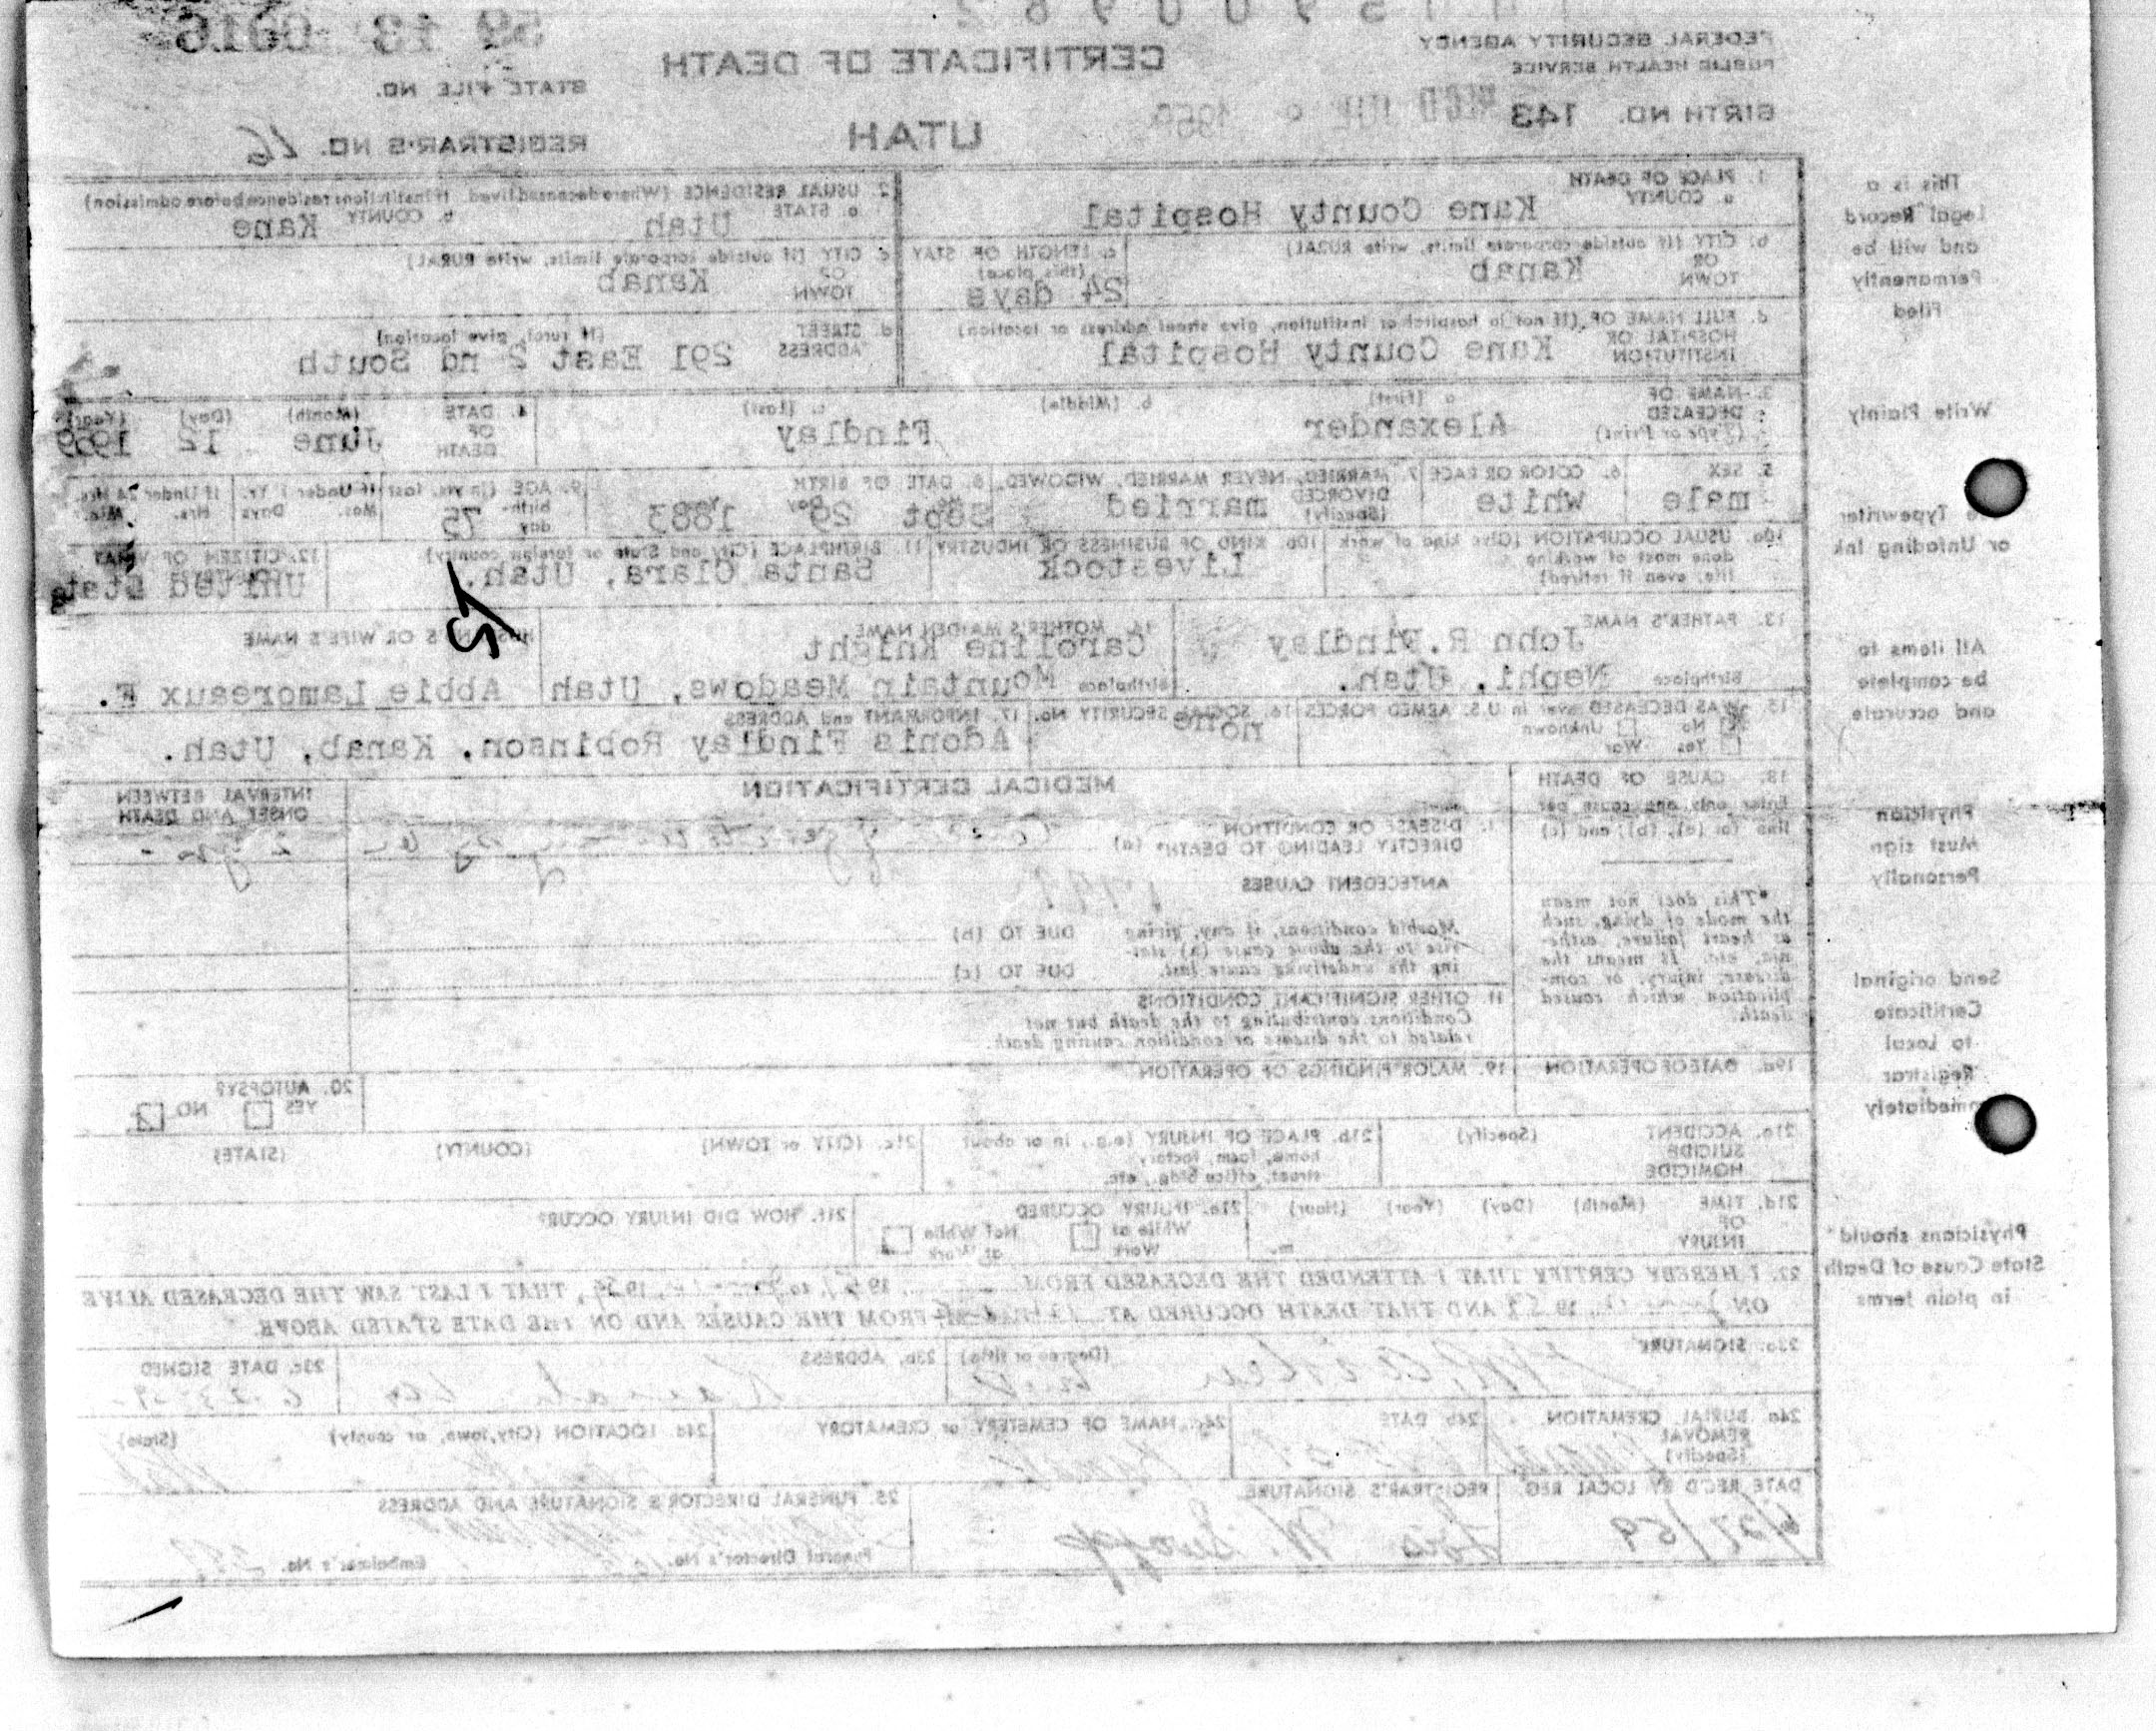 FEDERAL SECURITY AGENCY
PUBLIC HEALTH SERVICE
BIRTH NO. 143
CERTIFICATE OF DEATH
UTAH
59 13 0016
STATE FILE NO.
REGISTRAR'S NO. 26
1. PLACE OF DEATH
a. COUNTY Kane County Hospital
2. USUAL RESIDENCE (Where deceased lived. If institution: residence before admission)
a. STATE Utah b. COUNTY Kane
b. CITY (If outside corporate limits, write RURAL)
OR TOWN Kanab
c. LENGTH OF STAY (this place)
24 days
c. CITY (If outside corporate limits, write RURAL)
OR TOWN Kanab
d. FULL NAME OF (If not in hospital or institution, give street address or location)
HOSPITAL OR INSTITUTION Kane County Hospital
d. STREET ADDRESS (If rural, give location)
291 East 2 nd South
3. NAME OF DECEASED (Type or Print)
a. (First) b. (Middle) c. (Last)
Alexander Findlay
4. DATE OF DEATH (Month) (Day) (Year)
June 12 1959
5. SEX
male
6. COLOR OR RACE
White
7. MARRIED, NEVER MARRIED, WIDOWED, DIVORCED (Specify)
married
8. DATE OF BIRTH
Sept 29 1883
9. AGE (In yrs. last birthday) 75
If Under 1 Yr. Mos. Days
If Under 24 Hrs. Hrs. Min.
10a. USUAL OCCUPATION (Give kind of work done most of working life, even if retired)
10b. KIND OF BUSINESS OR INDUSTRY
Livestock
11. BIRTHPLACE (City and State or foreign country)
Santa Clara, Utah.
12. CITIZEN OF WHAT COUNTRY?
United States
13. FATHER'S NAME
John R. Findlay
Birthplace Nephi, Utah.
14. MOTHER'S MAIDEN NAME
Caroline Knight
Birthplace Mountain Meadows, Utah
HUSBAND'S OR WIFE'S NAME
Abbie Lamoreaux F.
15. WAS DECEASED ever in U.S. ARMED FORCES
No Unknown
Yes War
16. SOCIAL SECURITY No.
none
17. INFORMANT and ADDRESS
Adonis Findlay Robinson, Kanab, Utah.
18. CAUSE OF DEATH
Enter only one cause per line for (a), (b), and (c)
*This does not mean the mode of dying, such as heart failure, asthenia, etc. It means the disease, injury, or complication which caused death.
MEDICAL CERTIFICATION
INTERVAL BETWEEN ONSET AND DEATH
I. DISEASE OR CONDITION DIRECTLY LEADING TO DEATH* (a)
2 yrs -
ANTECEDENT CAUSES
Morbid conditions, if any, giving rise to the above cause (a) stating the underlying cause last.
DUE TO (b)
DUE TO (c)
II. OTHER SIGNIFICANT CONDITIONS
Conditions contributing to the death but not related to the disease or condition causing death.
19a. DATE OF OPERATION
19. MAJOR FINDINGS OF OPERATION
20. AUTOPSY?
YES NO
21a. ACCIDENT SUICIDE HOMICIDE (Specify)
21b. PLACE OF INJURY (e.g., in or about home, farm, factory, street, office bldg., etc.
21c. (CITY or TOWN) (COUNTY) (STATE)
21d. TIME OF INJURY (Month) (Day) (Year) (Hour) m.
21e. INJURY OCCURED
While at Work Not While at Work
21f. HOW DID INJURY OCCUR?
22. I HEREBY CERTIFY THAT I ATTENDED THE DECEASED FROM 19 to 1959, THAT I LAST SAW THE DECEASED ALIVE
ON June 19 59 AND THAT DEATH OCCURED AT FROM THE CAUSES AND ON THE DATE STATED ABOVE.
23a. SIGNATURE (Degree or title)
23b. ADDRESS
Kanab
23c. DATE SIGNED
6-23-59
24a. BURIAL, CREMATION, REMOVAL (Specify)
Burial
24b. DATE
24c. NAME OF CEMETERY or CREMATORY
Kanab
24d. LOCATION (City, town, or county) (State)
Kanab Utah
DATE REC'D BY LOCAL REG.
6/27/59
REGISTRAR'S SIGNATURE
25. FUNERAL DIRECTOR'S SIGNATURE AND ADDRESS
Funeral Director's No. Embalmer's No.
This is a
Legal Record
and will be
Permanently
Filed
Write Plainly
Typewriter
or Unfading Ink
All items to
be complete
and accurate
Physician
Must sign
Personally
Send original
Certificate
to Local
Registrar
Immediately
Physicians should
State Cause of Death
in plain terms